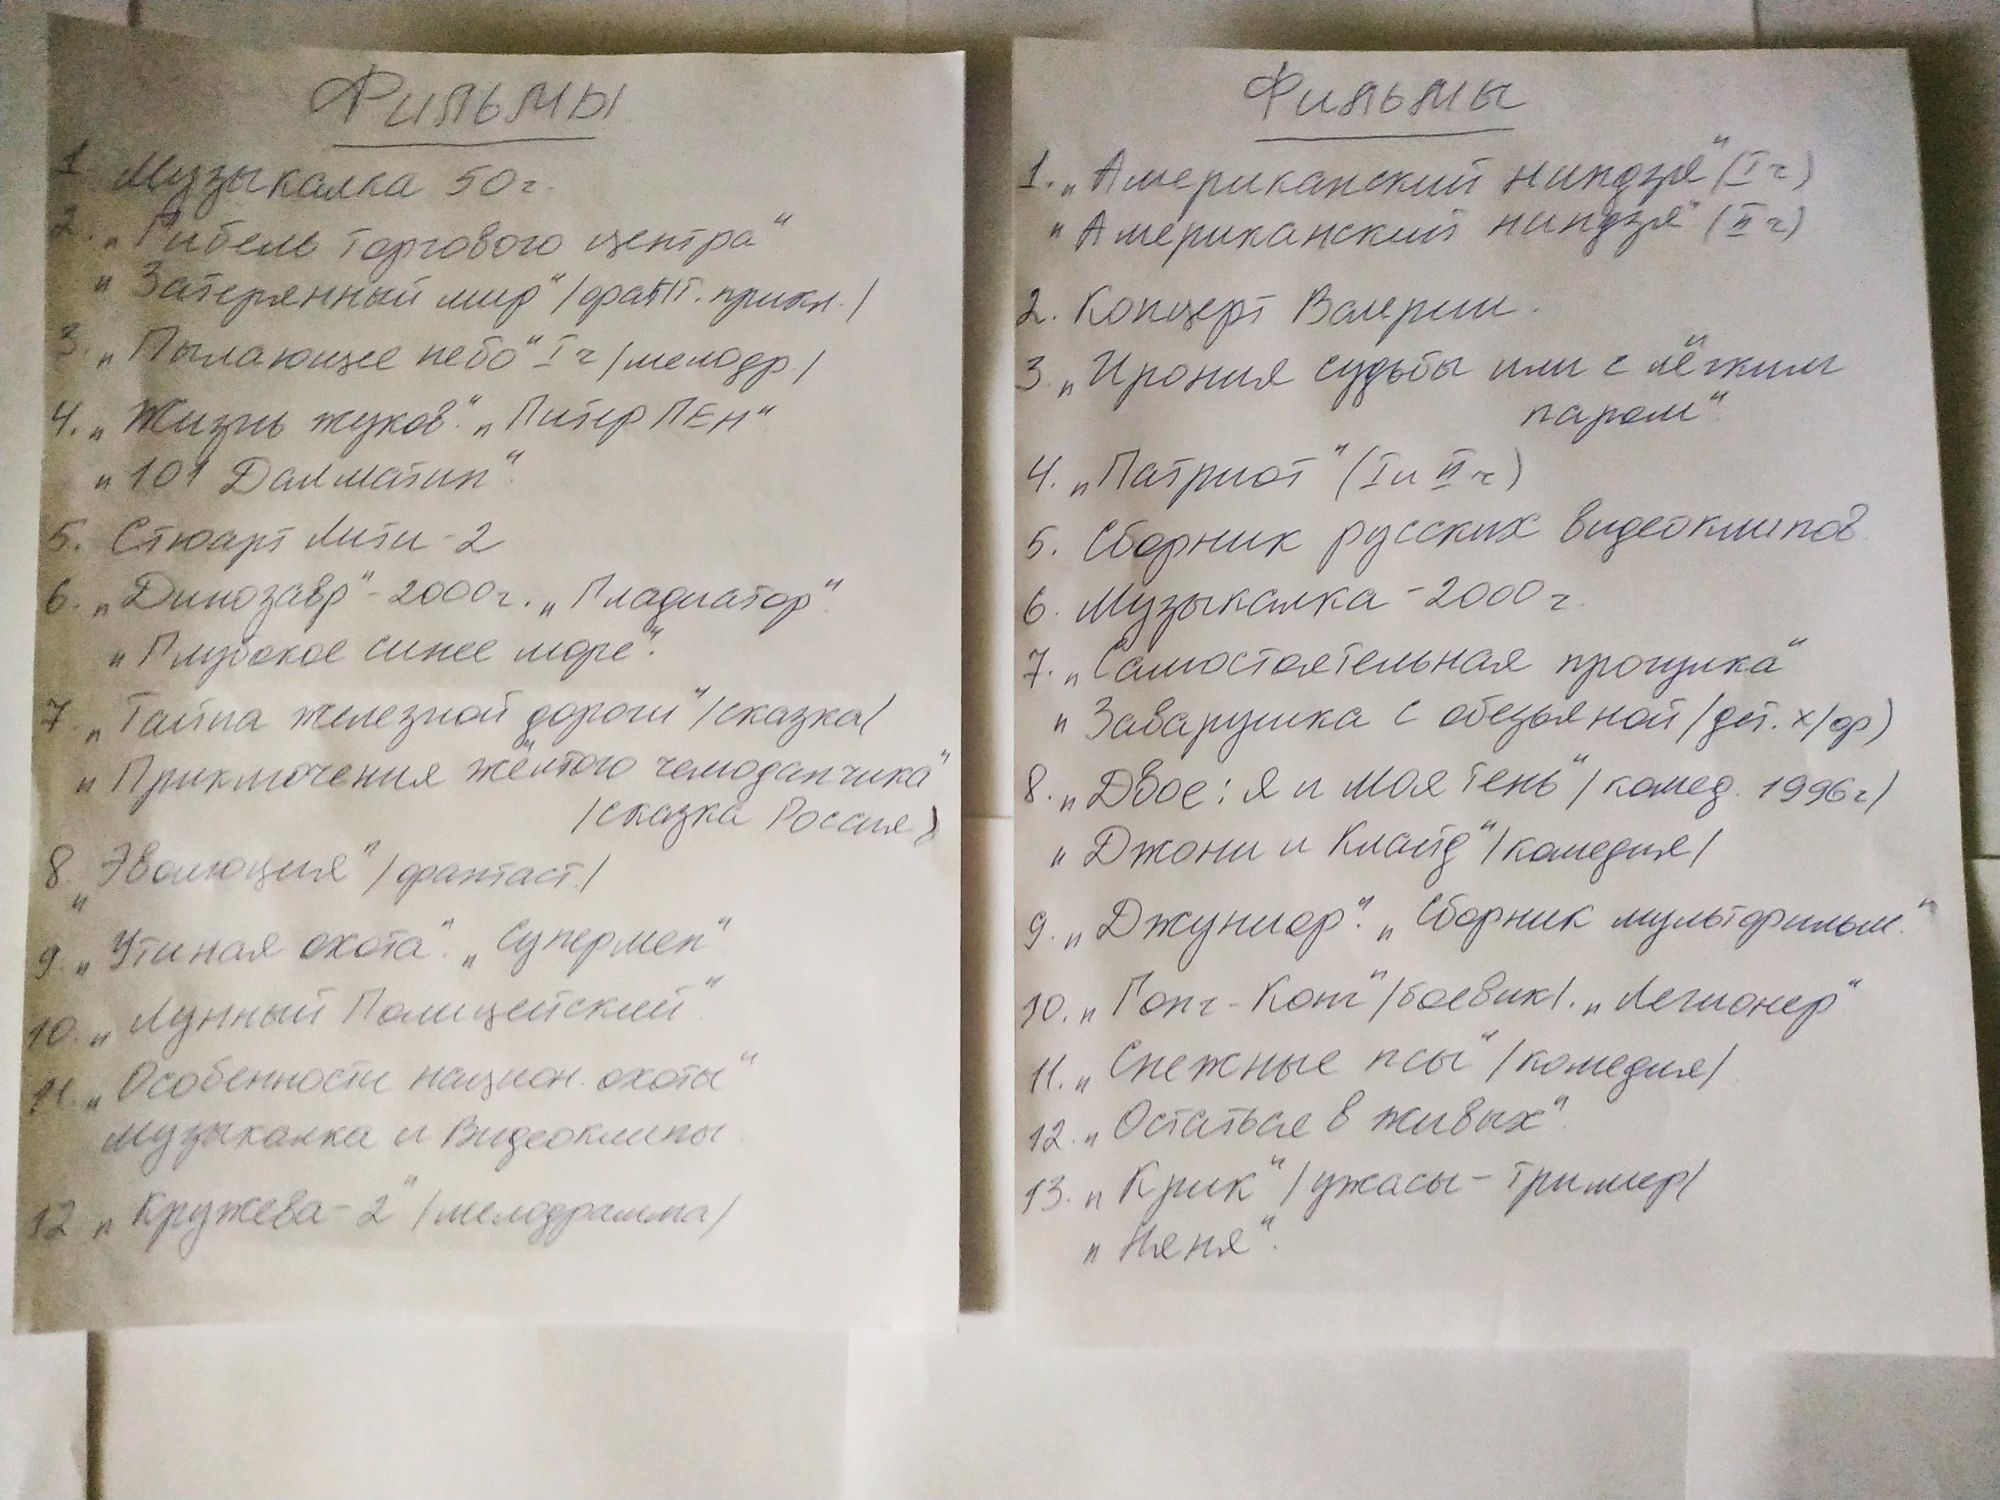 Фильмы
1. Музыкалка 50г.
2. „Гибель торгового центра“
„Затерянный мир“ /фант. прикл./
3. „Пылающее небо“ I ч /мелодр./
4. „Жизнь жуков“. „Питер ПЕн“
„101 Далматин“.
5. Стюарт Лити-2
6. „Динозавр“-2000г. „Гладиатор“.
„Глубокое синее море“.
7. „Тайна железной дороги“ /сказка/
„Приключения жёлтого чемоданчика“
/сказка Россия/
8 „Эволюция“ /фантаст./
9. „Утиная охота“. „Супермен“.
10. „Лунный Полицейский“.
11. „Особенности национ. охоты“
Музыкалка и Видеоклипы
12 „Кружева-2“ /мелодрамма/
Фильмы
1. „Американский ниндзя“ (I ч)
„Американский ниндзя“ (II ч)
2. Концерт Валерии.
3. „Ирония судьбы или с лёгким
паром“.
4. „Патриот“ (I и II ч)
5. Сборник русских видеоклипов.
6. Музыкалка-2000г.
7. „Самостоятельная прогулка“
„Заварушка с обезьяной /дет. х/ф)
8. „Двое: я и моя тень“ /комед. 1996г/
„Джони и Клайд“ /комедия/
9. „Джуниор“. „Сборник мультфильм.“
10. „Гонг-Конг“ /боевик/. „Легионер“
11. „Снежные псы“ /комедия/
12. „Остаться в живых“.
13. „Крик“ /ужасы-триллер/
„Няня“.